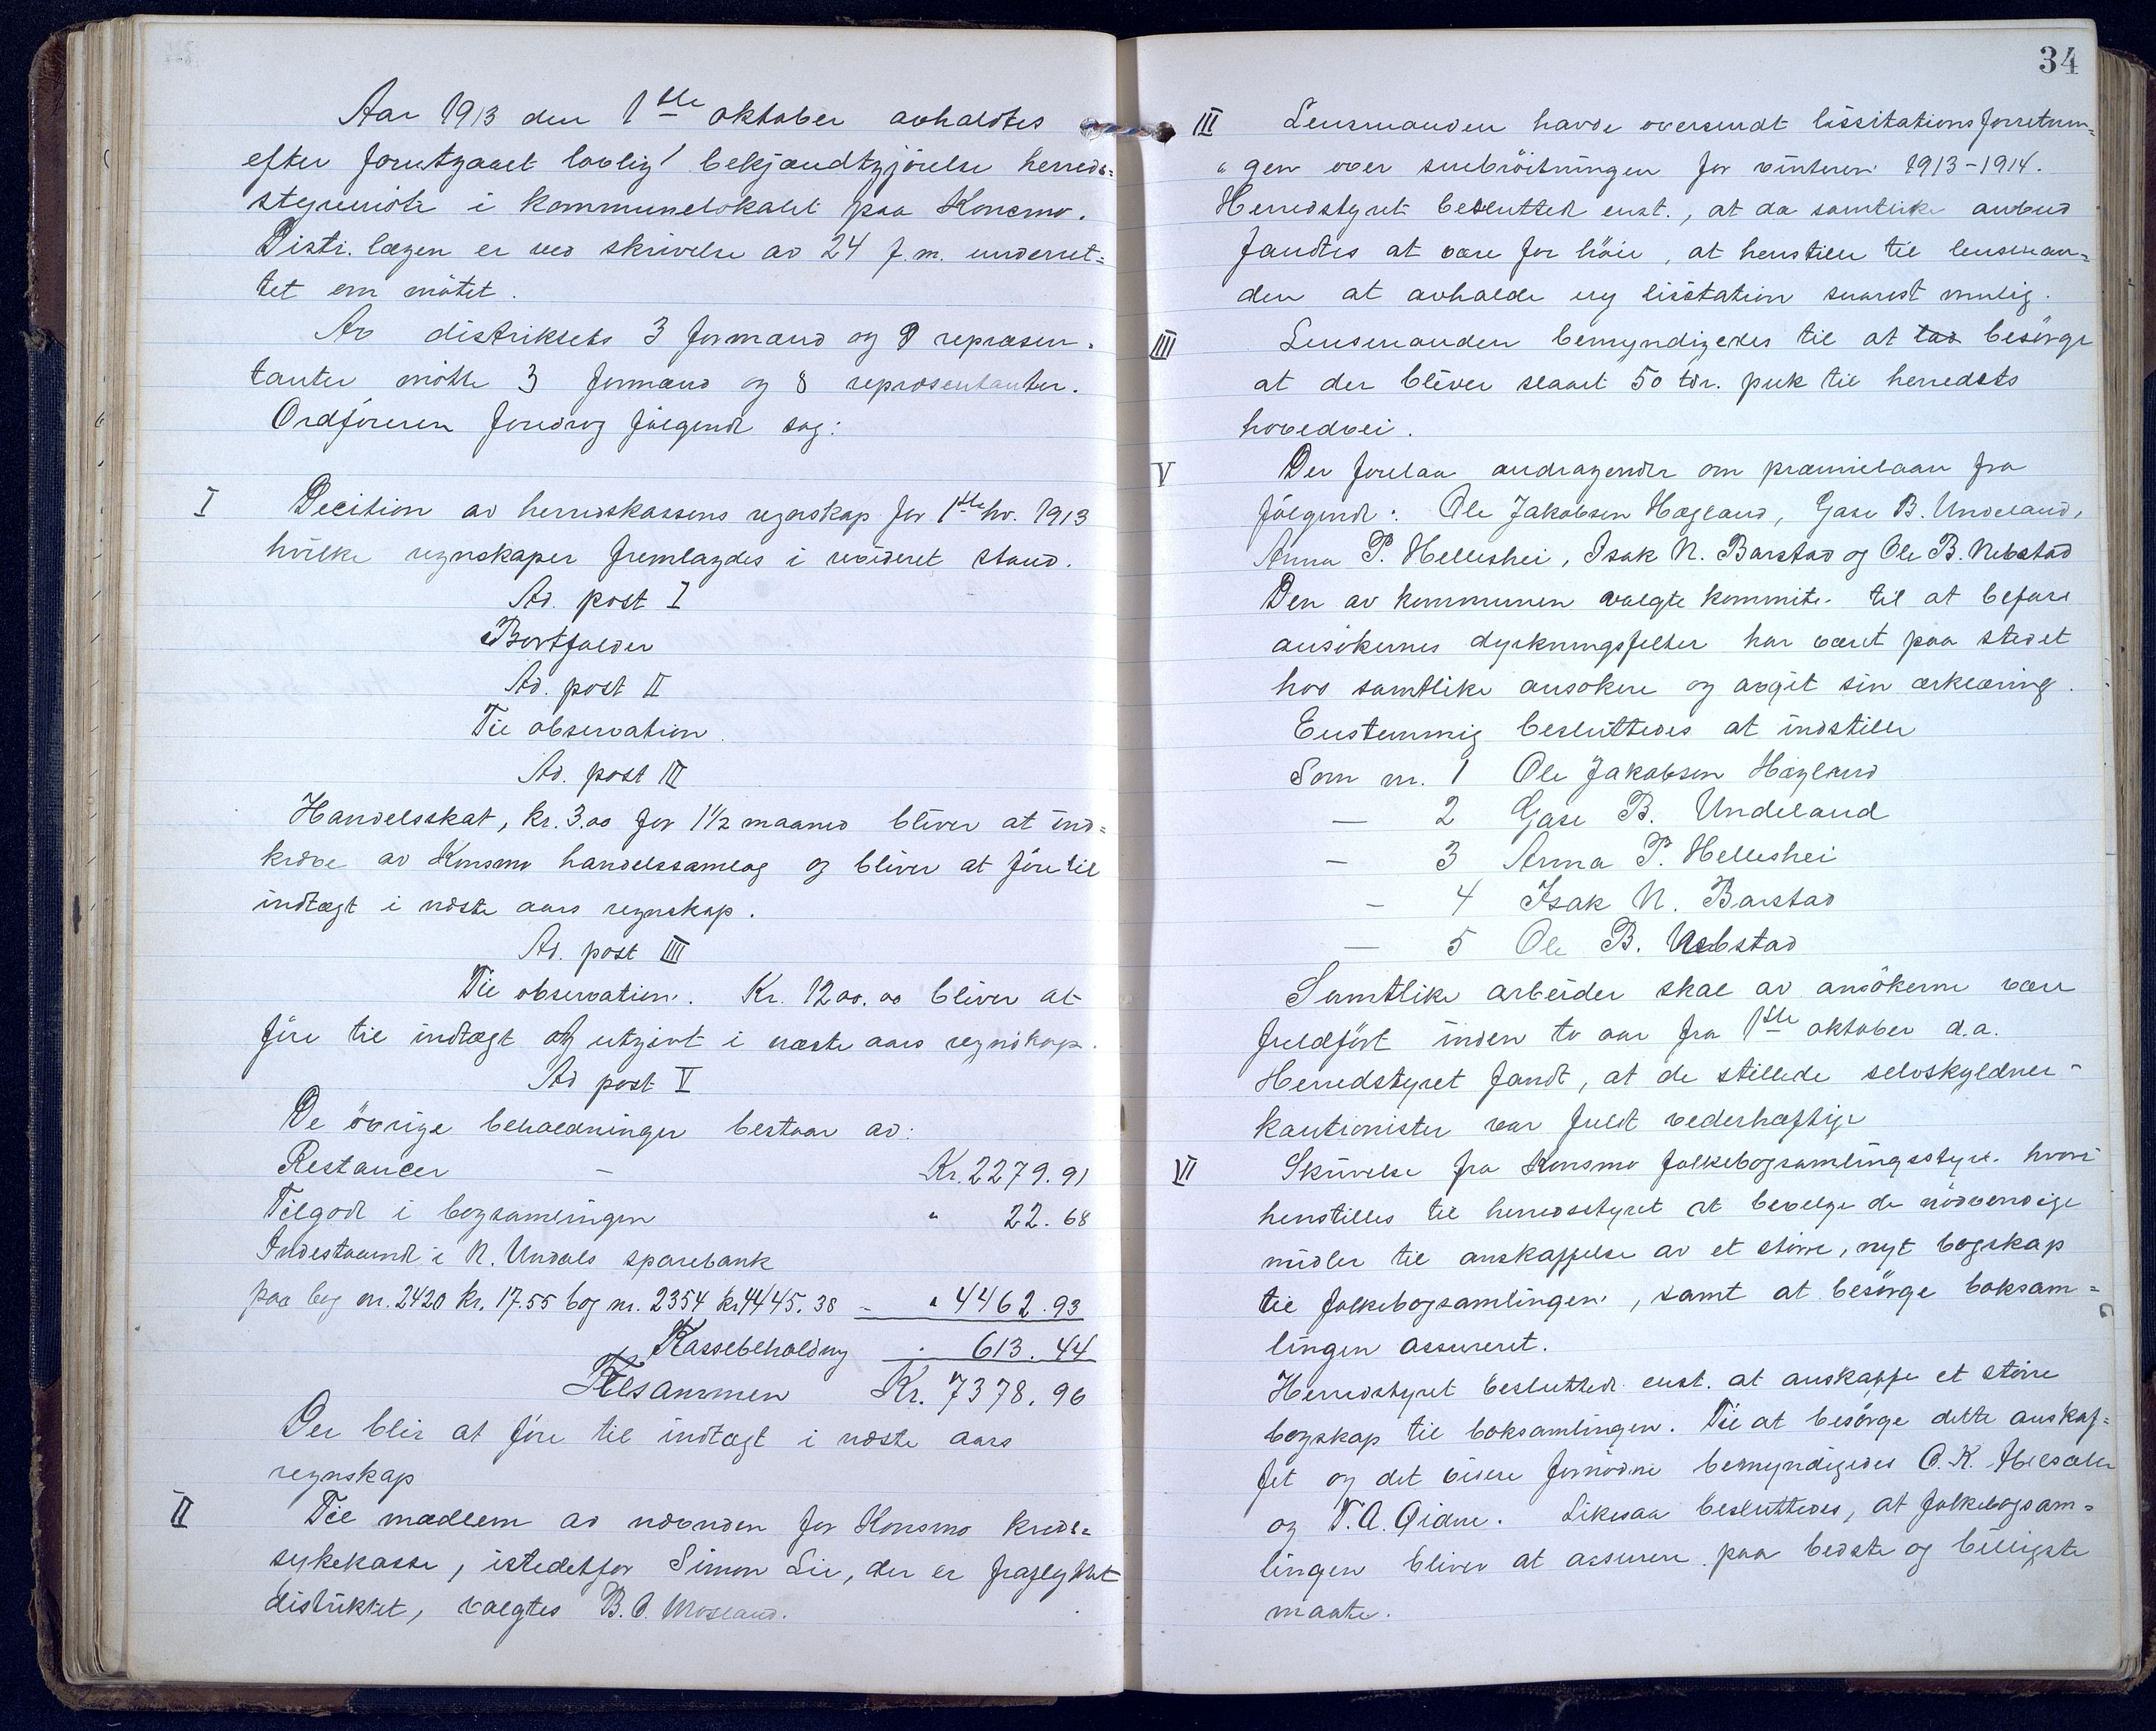 Aar 1913 den 1ste oktober avholdtes
efter forutgaaet lovlig bekjændtgjörelse herreds=
styremöte i kommunelokalet paa Konsmo.
Distr. lægen er ved skrivelse av 24 f.m. underret=
tet om mötet.
Av distriktets 3 formænd og 9 repræsen=
tanter mötte 3 formænd og 8 repræsentanter.
Ordföreren foredrog fölgende sag:
I Decition av herredskassens regnskap for 1ste hv. 1913
hvilke regnskaper fremlagdes i revideret stand.
Ad. post I
Bortfalder
Ad. post II
Til observation.
Ad. post III
Handelsskat, kr. 3.00 for 1½ maaned bliver at ind=
kræve av Konsmo handelssamlag og bliver at före til
indtægt i næste aars regnskap.
Ad. post IIII
Til observation. Kr. 1200.00 bliver at
före til indtægt og utgivt i næste aars regnskap.
Ad post V
De övrige beholdninger bestaar av:
Restancer - Kr. 2279.91
Tilgode i bogsamlingen " 22.68
Indestaaende i N. Undals sparebank
paa bog nr. 2420 kr. 17.55 bog nr. 2354 kr 4445.38 - " 4462.93
Kassebeholdng " 613.44
Tilsammen Kr. 7378.96
Der blir at före til indtægt i næste aars
regnskap
II Til medlem av nævnden for Konsmo kreds=
sykekasse, istedetfor Simon Lie, der er fraflyttet
distriktet, valgtes B. O. Mosland.
34
III Lensmanden havde oversendt lissitationsforretnin=
"gen over snebröitningen for vinteren 1913-1914.
Herredstyret besluttede enst., at da samtlike anbud
fandtes at være for höie, at henstille til lensman=
den at avholde ny lissitation snarest mulig.
IIII Lensmanden bemyndigedes til at lad besörge
at der bliver slaaet 50 tdr. puk til herredets
hovedvei.
V Der forelaa andragender om præmielaan fra
fölgende: Ole Jakobsen Hægland, Gase B. Undeland,
Anna P. Helleshei, Isak N. Barstad og Ole B. Nebstad
Den av kommunen valgte kommite til at befare
ansökernes dyrkningsfelter har været paa stedet
hos samtlike ansökere og avgit sin ærklæring.
Enstemmig besluttedes at indstille
Som nr. 1 Ole Jakobsen Hægland
— 2 Gase B. Undeland
— 3 Anna P. Helleshei
— 4 Isak N. Barstad
— 5 Ole B. Nebstad
Samtlike arbeider skal av ansökerne være
fuldfört inden to aar fra 1ste oktober d.a.
Herredstyret fandt, at de stillede selvskyldner-
kautionister var fuldt vederhæftige
VI Skrivelse fra Konsmo folkebogsamlingsstyre hvori
henstilles til herredsstyret at bevilge de nödvendige
midler til anskaffelse av et större, nyt bogskap
til folkebogsamlingen, samt at besörge boksam=
lingen assureret.
Herredstyret besluttede enst. at anskaffe et större
bogskap til boksamlingen. Til at besörge dette anskaf=
fet og det videre fornödne bemyndigedes O. K.
og T. A. Eidne. Likesaa besluttedes, at folkebogsam=
lingen bliver at assurere paa bedste og billigste
maate.